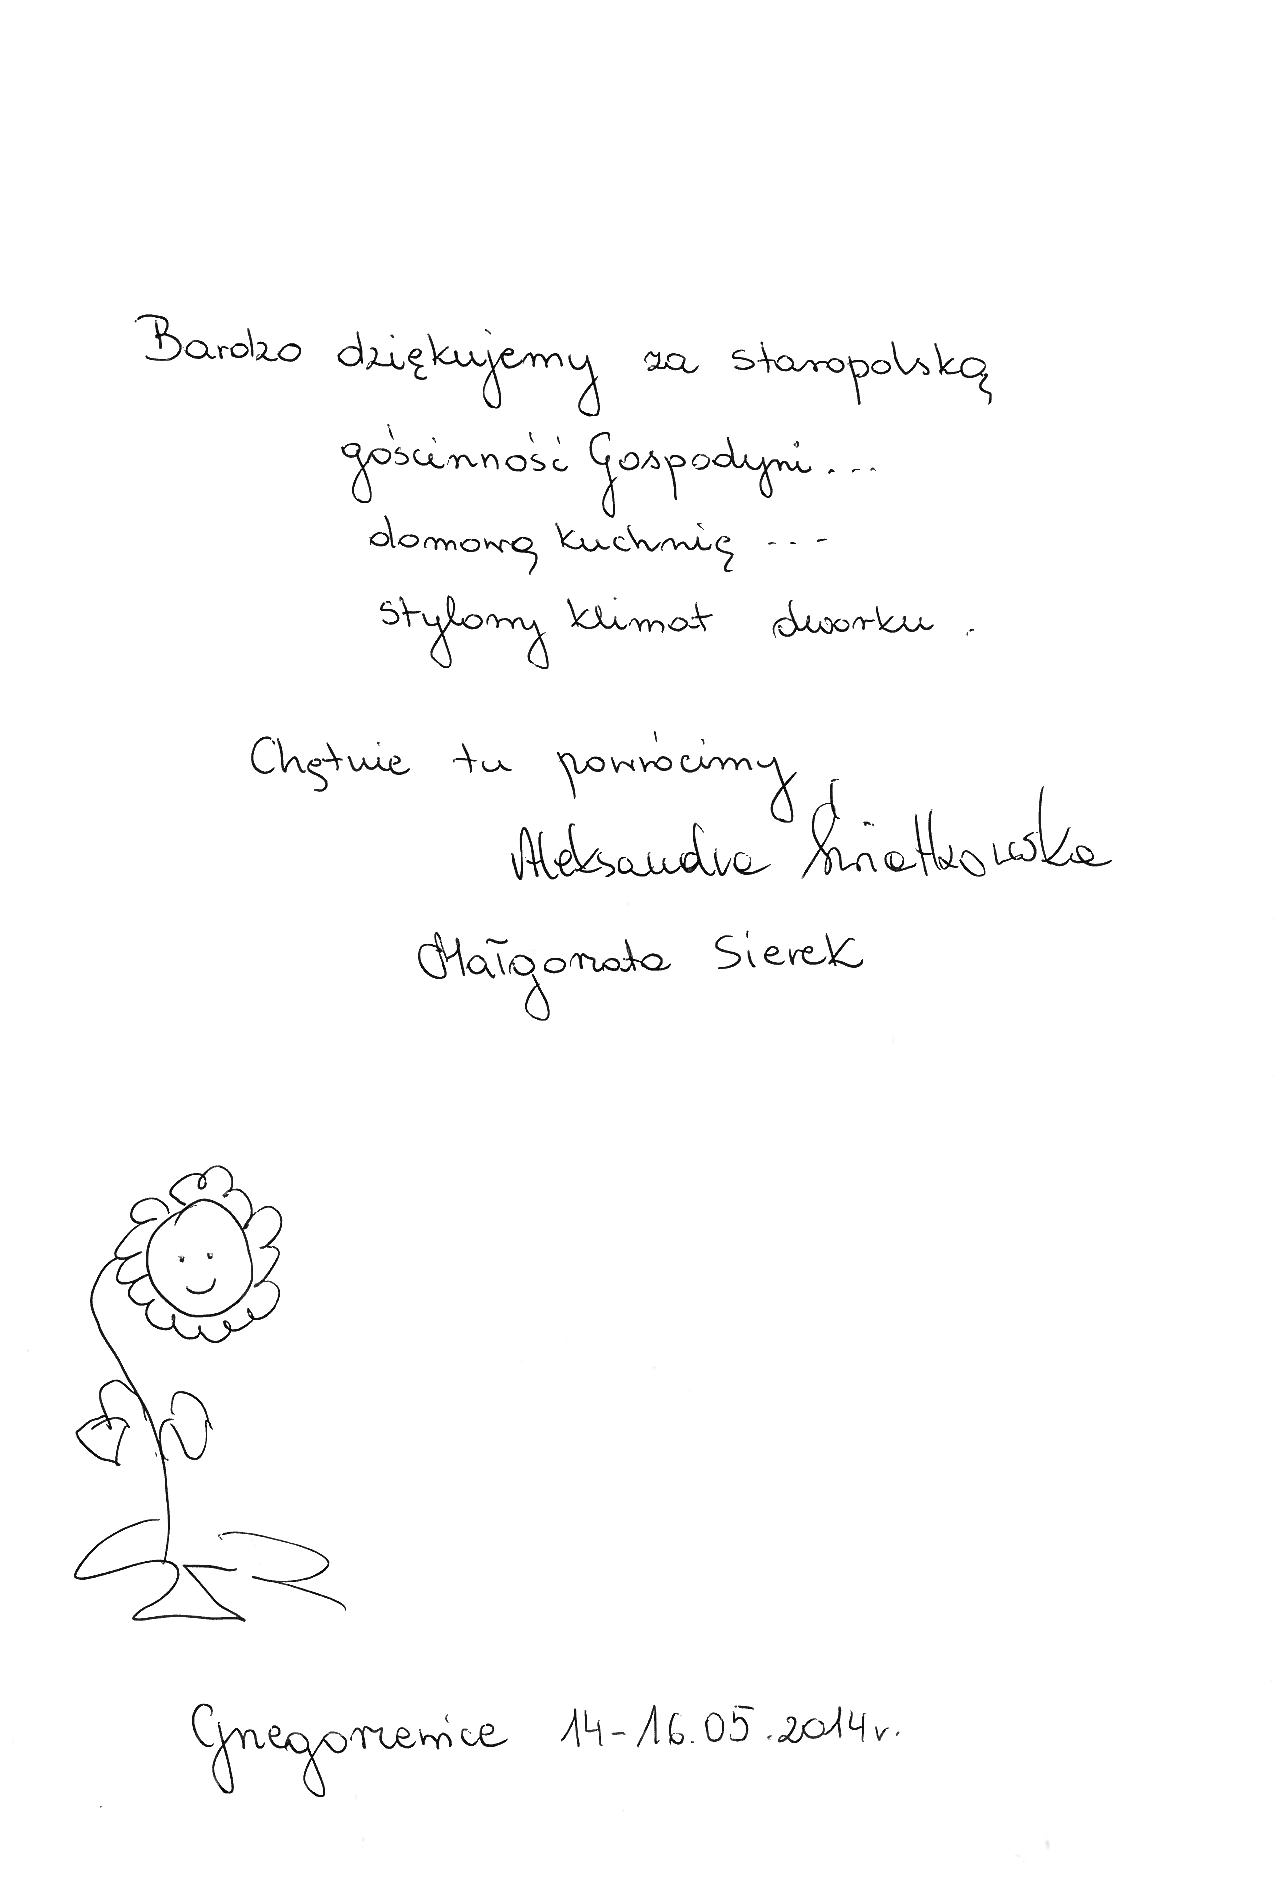 Bardzo dziękujemy za staropolską
gościnność Gospodyni...
domową kuchnię ...
stylowy klimat dworku.
Chętnie tu powrócimy
Aleksandra Światkowska
Małgorzata Sierek
Grzegorzewice 14-16.05.2014r.